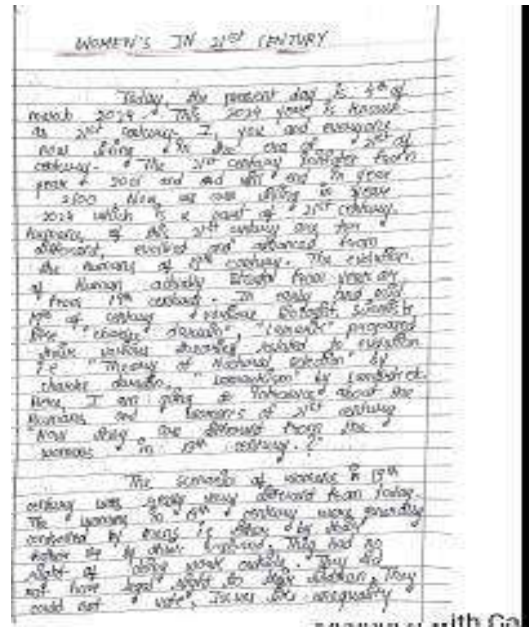 WOMEN'S IN 21st CENTURY
Today, the present day is 4th of
march 2024. This 2024 year is known
as 21st century. I, you and everyone
now living in the era of 21st
century. The 21st century from
year 2001 and and will end in year
2100. Now, we are living in year
2024 which is a part of 21st century.
Humans of this 21st century are far
different, evolved and advanced from
the humans of 19th century. The evolution
of Human actually from
from 19th century. In early and mid
19th of century various scientists
like "charles darwin", "Lamarck" proposed
their various theories related to evolution
i.e "Theory of Natural selection" by
charles darwin, "Lamarckism" by
Here, I am going to introduce about the
Humans and women's of 21st century
"How they are different from the
womens in 19th century.?"
The scenario of womens in 19th
century was very different from today.
The womens in 19th century were
controlled by mens is either by their
father or by their husband. They had no
right of doing work outside. They did
not have legal right to They
could not vote, Issues like inequality
with Ca